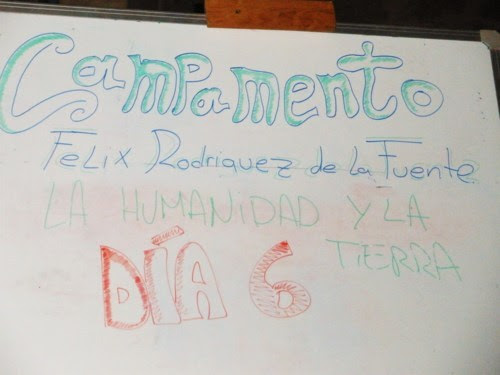 Campamento
Felix Rodriguez de la Fuente
LA HUMANIDAD Y LA
TIERRA
DÍA 6